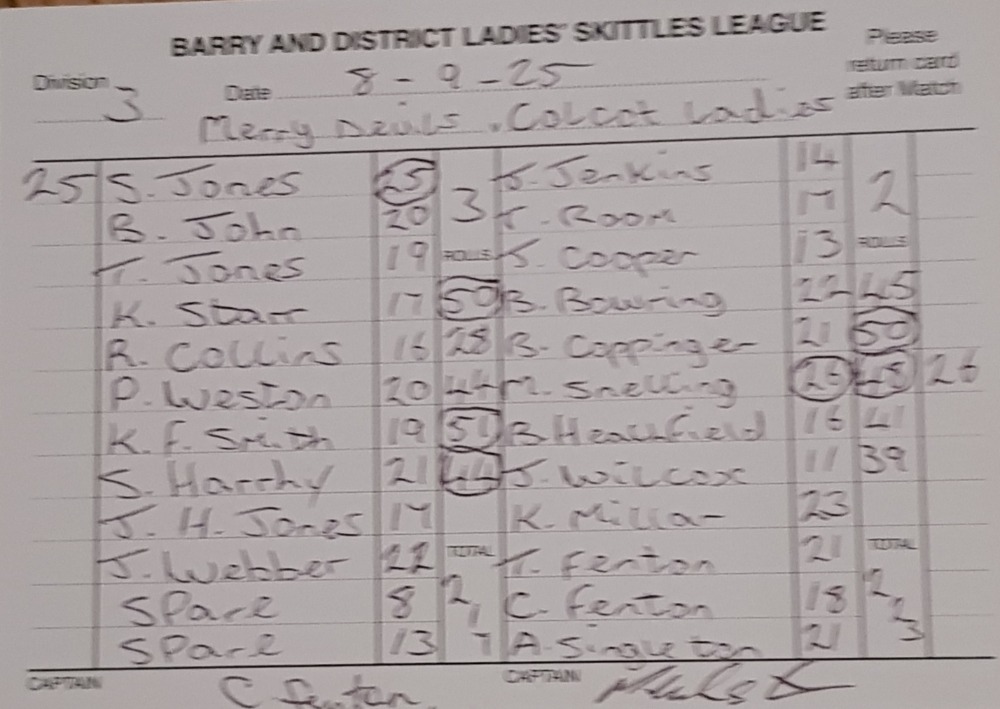 BARRY AND DISTRICT LADIES' SKITTLES LEAGUE
Please return card after Match
Division 3 Date 8 - 9 - 25
Merry Devils . Colcot Ladies
25 S. Jones 25 3 J. Jenkins 14 2
B. John 20 T. Room 17
T. Jones 19 ROLLS J. Cooper 13 ROLLS
K. Starr 17 50 B. Bowring 22 45
R. Collins 16 28 B. Coppinger 21 50
P. Weston 20 44 M. Snelling 26 48 26
K. F. Smith 19 51 B Heathfield 16 41
S. Harrhy 21 44 J. Wilcox 11 39
J. H. Jones 17 K. Millar 23
J. Webber 22 TOTAL T. Fenton 21 TOTAL
SPare 8 2 C. Fenton 18 2
SPare 13 1 7 A. Singleton 21 2 3
CAPTAIN C Fenton CAPTAIN